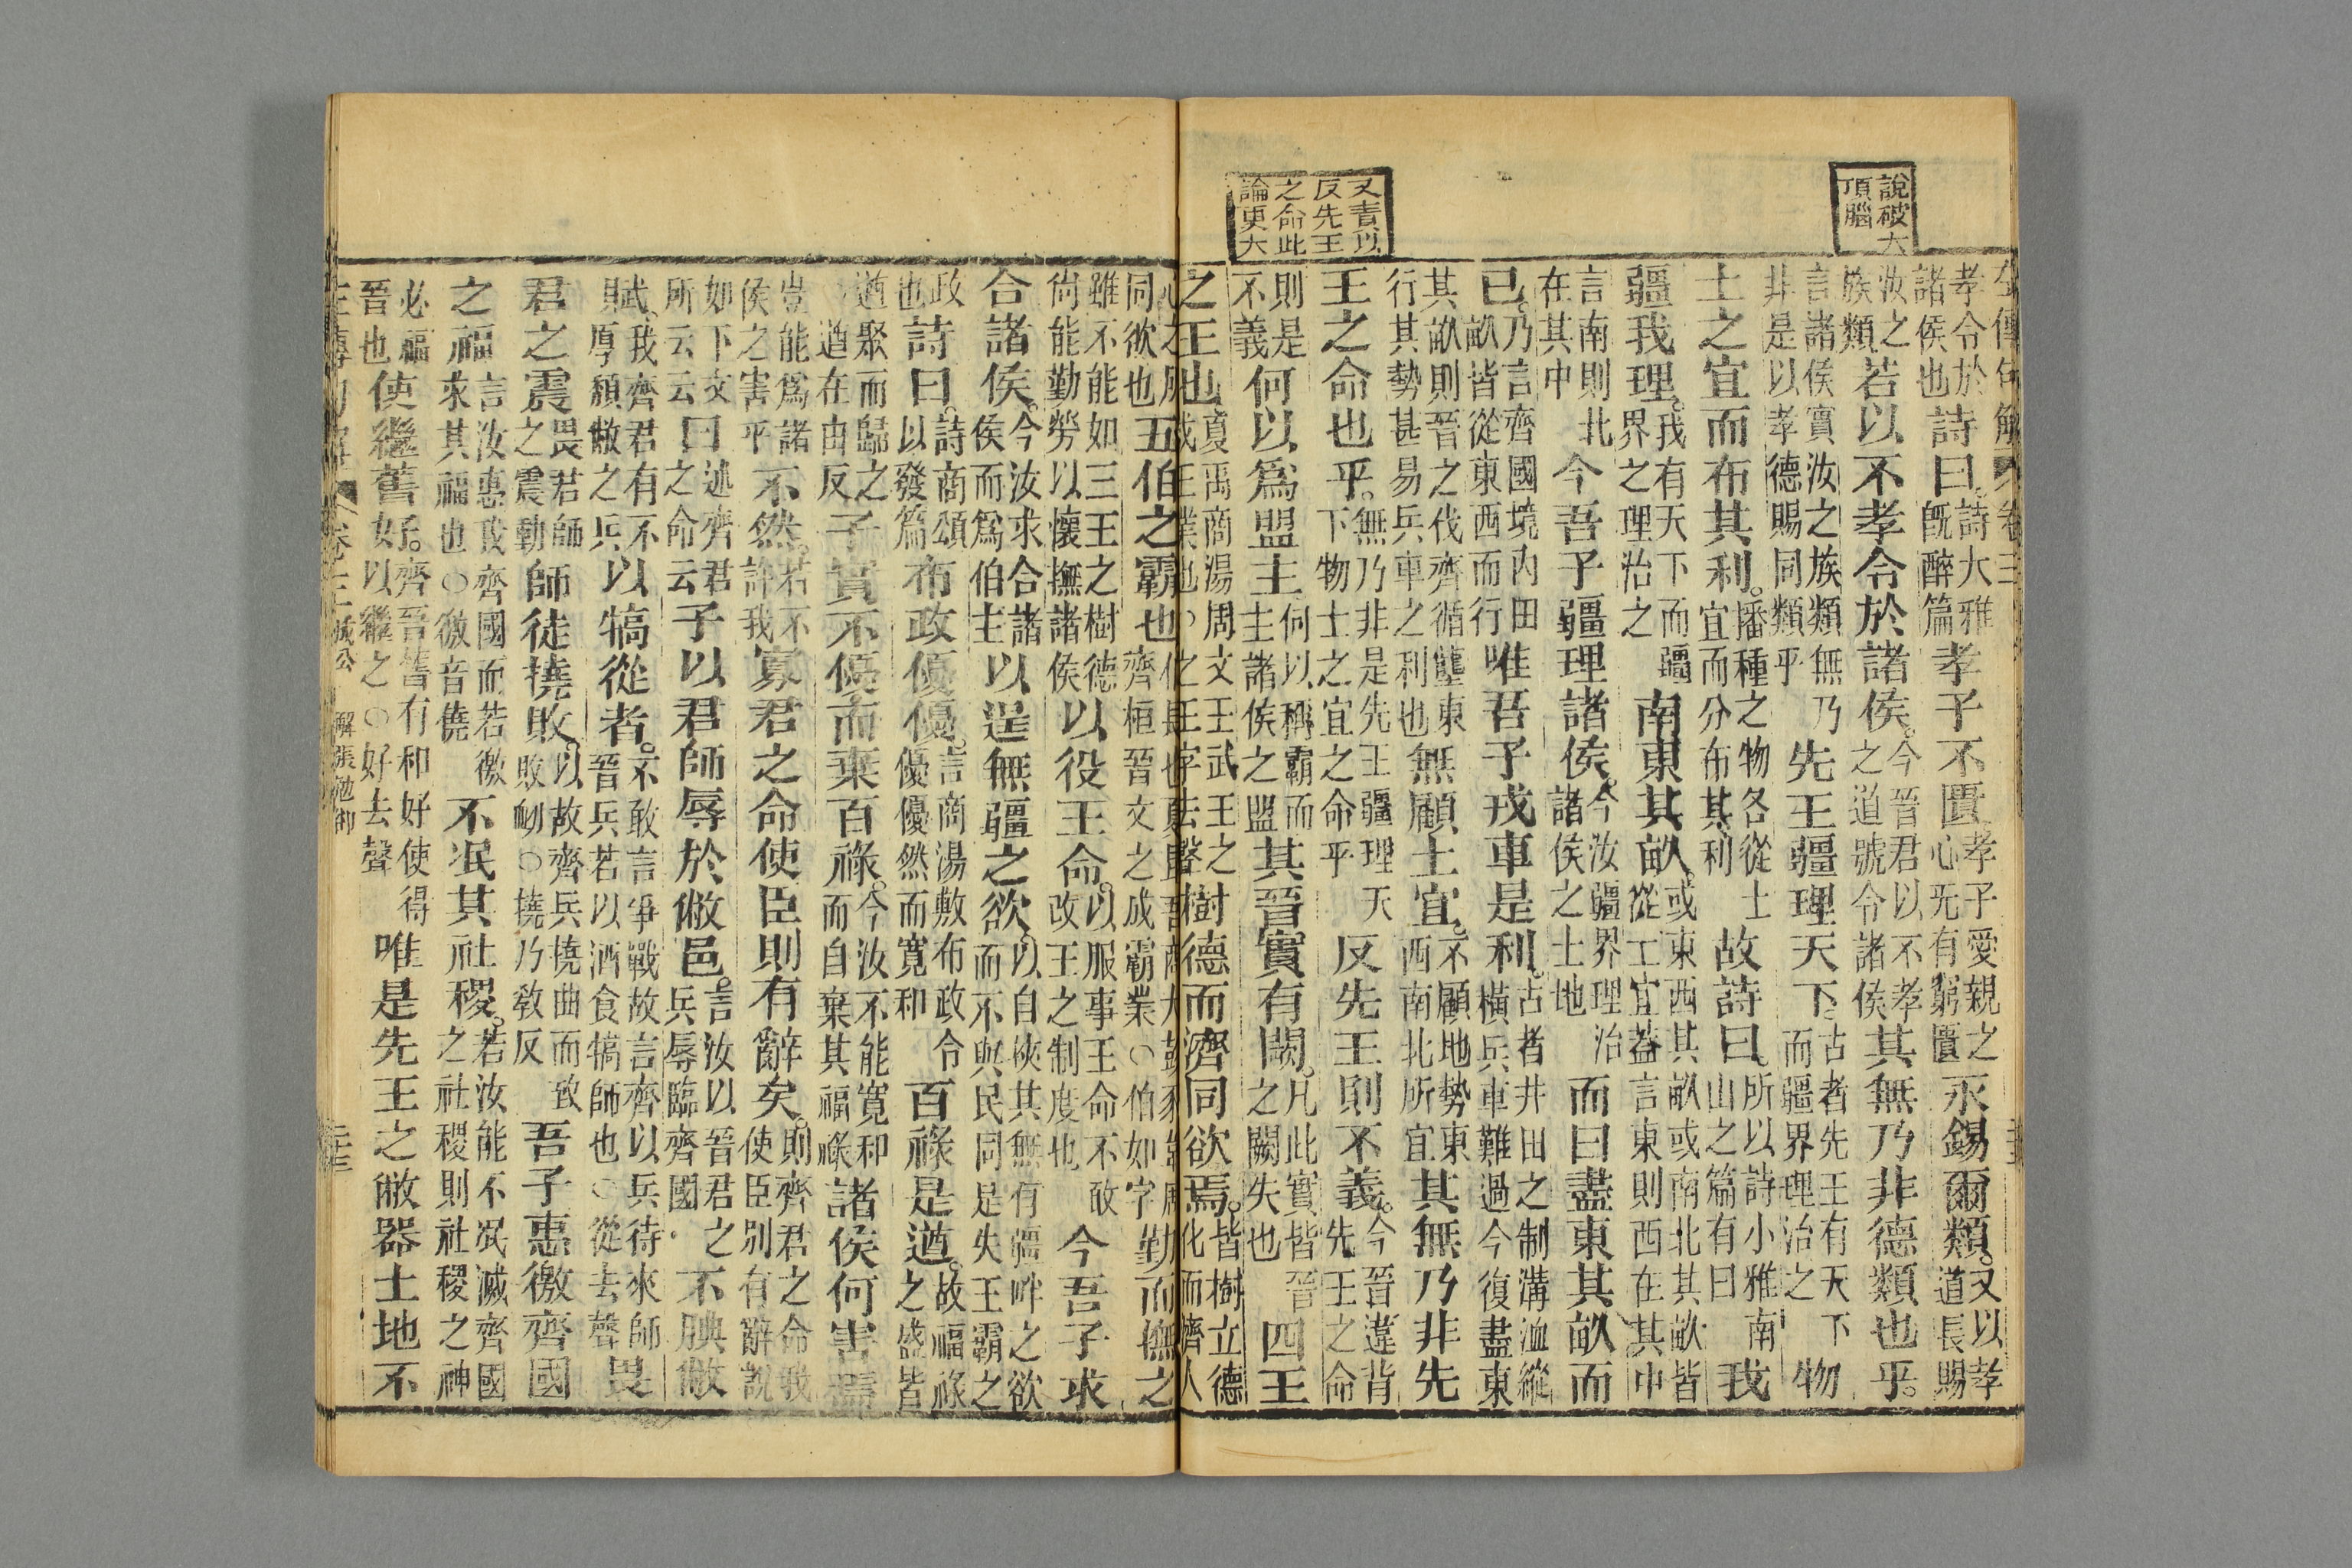 說破大
頂腦
又責以
反先王
之命此
論更大
左傳句解 卷三
孝令於諸侯也詩曰。詩大雅既醉篇孝子不匱孝子愛親之心无有窮匱永錫爾類。又以孝道長賜
汝之族類若以不孝令於諸侯。今晉君以不孝之道號令諸侯其無乃非德類也乎。
言諸侯實汝之族類無乃非是以孝德賜同類乎先王疆理天下。古者先王有天下而疆界理治之物
土之宜而布其利。播種之物各從土宜而分布其利故詩曰。所以詩小雅南山之篇有曰我
疆我理。我有天下而疆界之理治之南東其畝。或東西其畝或南北其畝皆從工宜蓋言東則西在其中
言南則北在其中今吾子疆理諸侯。今汝疆界理治諸侯之土地而曰盡東其畝而
已。乃言齊國境內田畝皆從東西而行唯吾子戎車是利。古者井田之制溝洫縱橫兵車難過今復盡東
其畝則晉之伐齊循壟東行其勢甚易兵車之利也無顧土宜。不顧地勢東西南北所宜其無乃非先
王之命也乎。無乃非是先王疆理天下物土之宜之命乎反先王則不義。今晉違背先王之命
則是不義何以爲盟主何以稱霸而主諸侯之盟其晉實有闕。凡此實皆晉之闕失也四王
之王也夏禹商湯周文王武王之成王業也○之王字去聲樹德而濟同欲焉。皆樹立德化而濟人
心之所同欲也五伯之霸也伯長也夏昆吾商大彭豕韋周齊桓晉文之成霸業○伯如字勤而撫之
雖不能如三王之樹德尙能勤勞以懷撫諸侯以役王命。以服事王命不敢改王之制度也今吾子求
合諸侯。今汝求合諸侯而爲伯主以逞無疆之欲。以自快其無有疆畔之欲而不與民同是失王霸之
政也詩曰。詩商頌以發篇布政優優。言商湯敷布政令優優然而寬和百祿是遒。故福祿之盛皆
遒聚而歸之遒在由反子實不優而棄百祿。今汝不能寬和而自棄其福祿諸侯何害焉
豈能爲諸侯之害乎不然。若不許我寡君之命使臣則有辭矣。則齊君之命我使臣別有辭說
如下文所云云曰述齊君之命云子以君師辱於敝邑。言汝以晉君之兵辱臨齊國不腆敝
賦。我齊君有不厚頹敝之兵以犒從者。不敢言爭戰故言齊以兵待來師晉兵若以酒食犒師也○從去聲畏
君之震畏君師之震動師徒撓敗。以故齊兵撓曲而致敗衂○撓乃敎反吾子惠徼齊國
之福言汝惠我齊國而若徼求其福也○徼音僥不泯其社稷。若汝能不泯滅齊國之社稷則社稷之神
必福晉也使繼舊好。齊晉舊有和好使得好以繼之○好去聲唯是先王之敝器土地不
左傳句解 卷三 成公 解張勉御